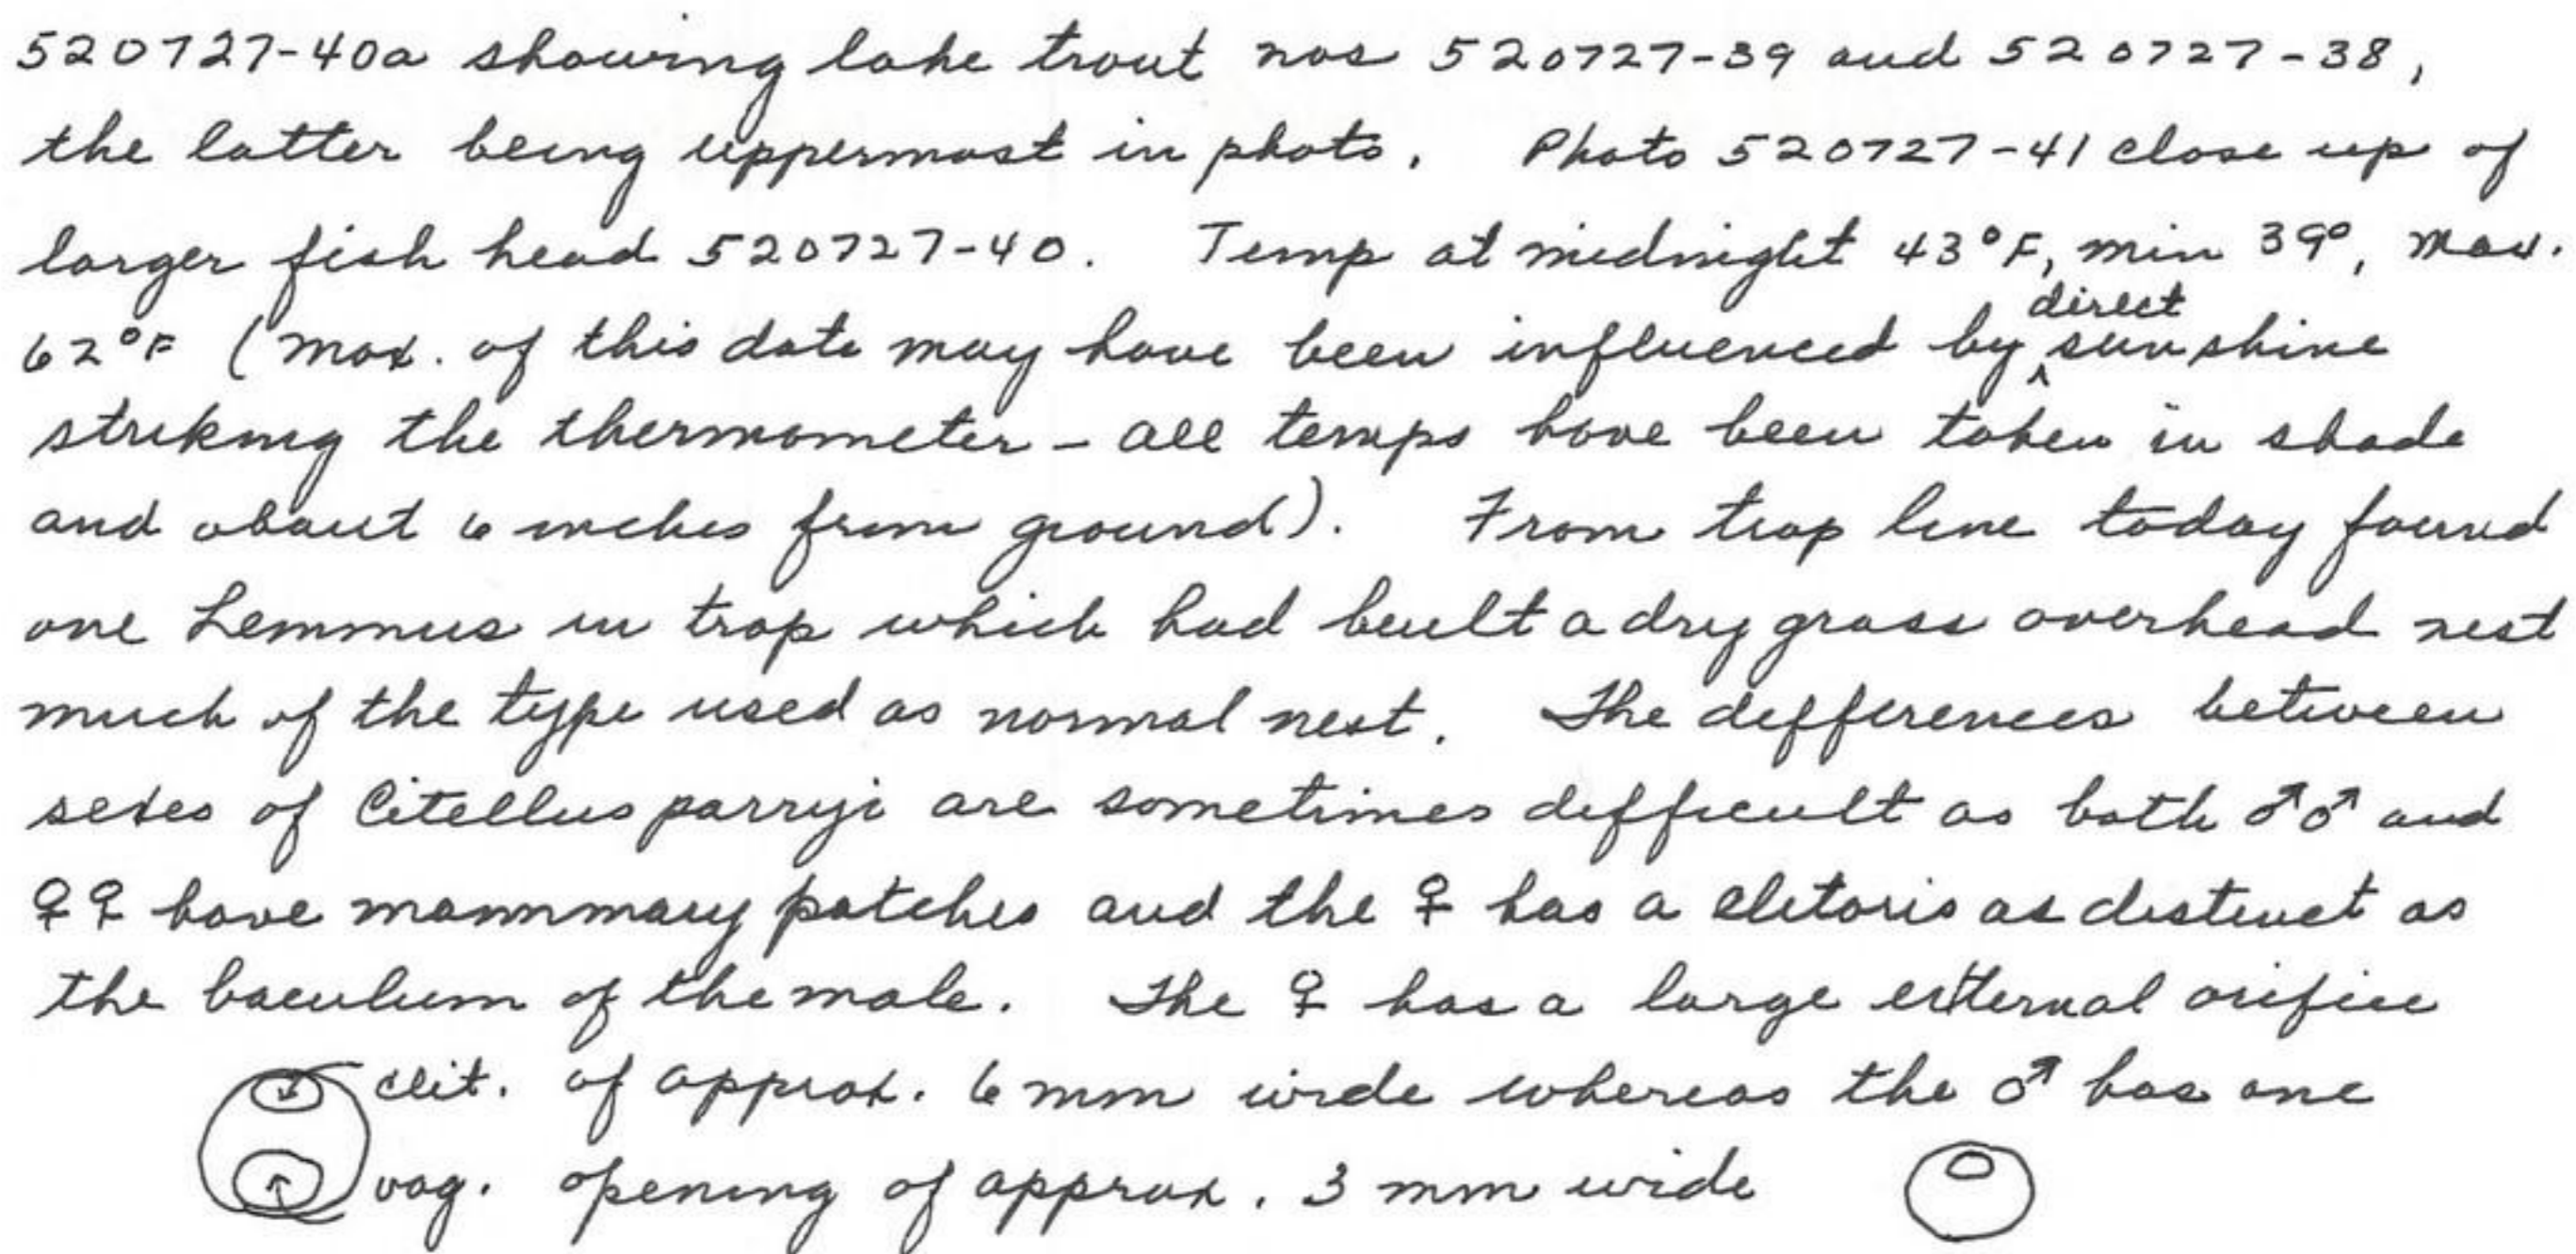 520727-40a showing lake trout nos 520727-39 and 520727-38,
the latter being uppermost in photo. Photo 520727-41 close up of
larger fish head 520727-40. Temp at midnight 43°F, min 39°, max.
62°F (max. of this date may have been influenced by direct sunshine
striking the thermometer - all temps have been taken in shade
and about 6 inches from ground). From trap line today found
one Lemmus in trap which had built a dry grass overhead nest
much of the type used as normal nest. The differences between
sexes of Citellus parryi are sometimes difficult as both ♂♂ and
♀♀ have mammary patches and the ♀ has a clitoris as distinct as
the baculum of the male. The ♀ has a large external orifice
clit. of approx. 6 mm wide whereas the ♂ has one
vag. opening of approx. 3 mm wide